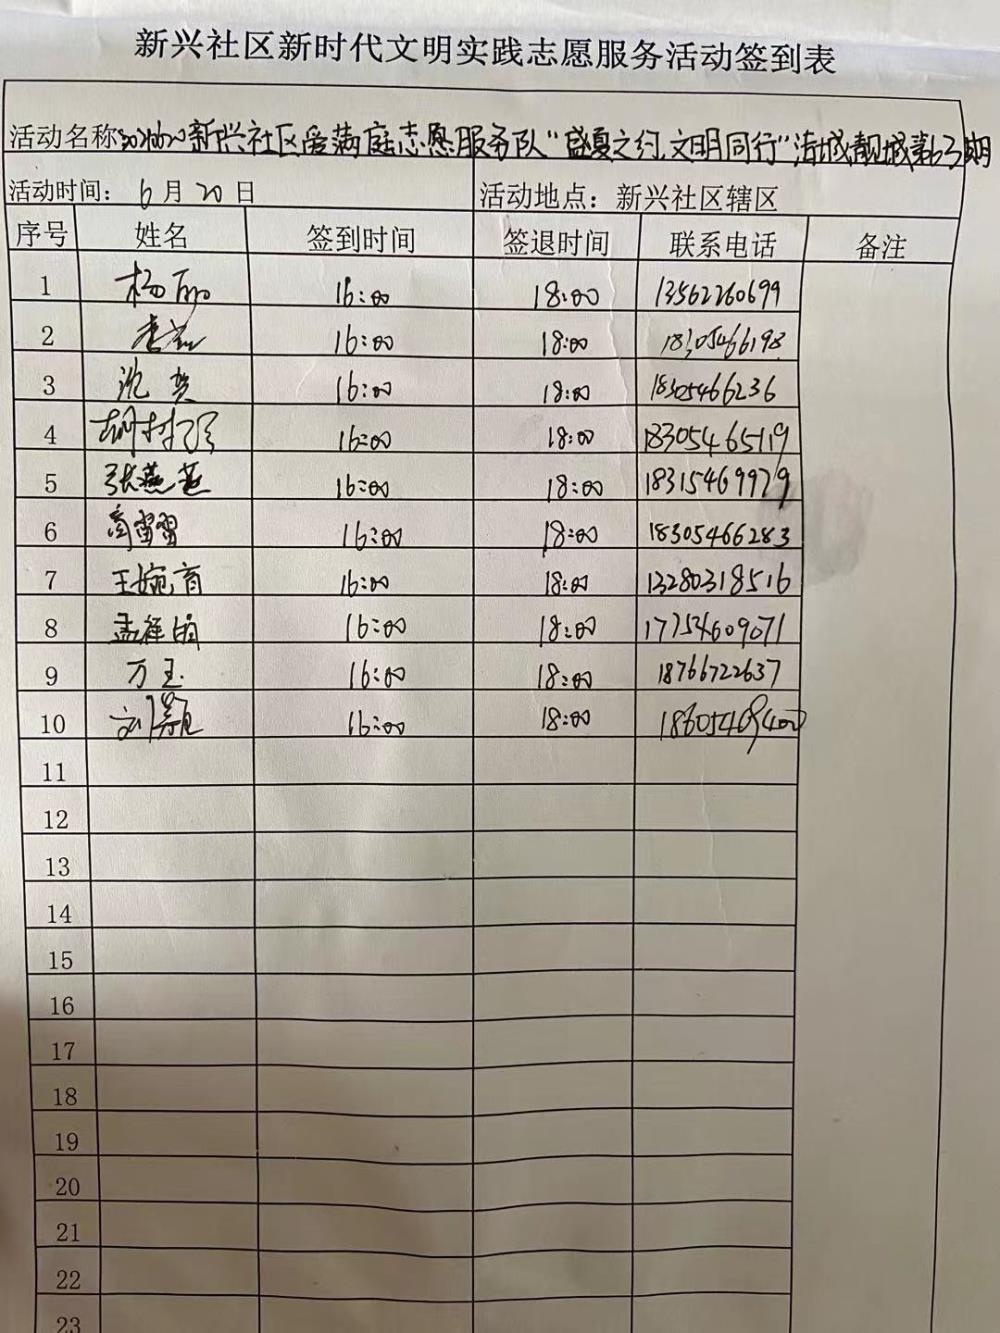 新兴社区新时代文明实践志愿服务活动签到表
活动名称 新兴社区爱满庭志愿服务队“盛夏之约,文明同行”清城靓城第63期
活动时间: 6月20日 活动地点: 新兴社区辖区
序号 姓名 签到时间 签退时间 联系电话 备注
1 杨丽 16:00 18:00 13562260699
2 16:00 18:00 18305466198
3 16:00 18:00 18305466236
4 16:00 18:00 18305465119
5 张燕燕 16:00 18:00 18315469979
6 16:00 18:00 18305466283
7 王婉育 16:00 18:00 13280318516
8 16:00 18:00 17754609071
9 万玉 16:00 18:00 18766722637
10 刘颖 16:00 18:00
11
12
13
14
15
16
17
18
19
20
21
22
23